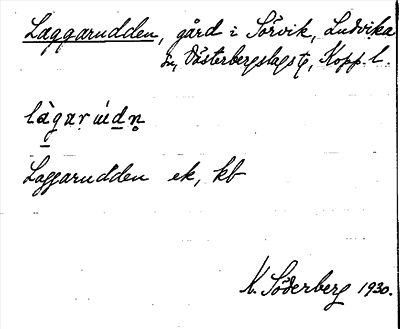 Laggarudden, gård i Sörvik, Ludvika
sn, Västerbergslags tg, Kopp. l.
làgar̥ úd̲n̥
Laggarudden ek, kb
K. Söderberg 1930.